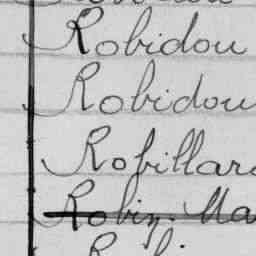 Robidou
Robidou
Robillard
Robin. Ma